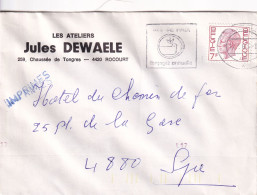 LES ATELIERS
Jules DEWAELE
259, Chaussée de Tongres — 4420 ROCOURT
IMPRIMÉS
BELGIË-BELGIQUE
7F
Hotel du Chemin de fer
25 pl. de la Gare
4880 Spa